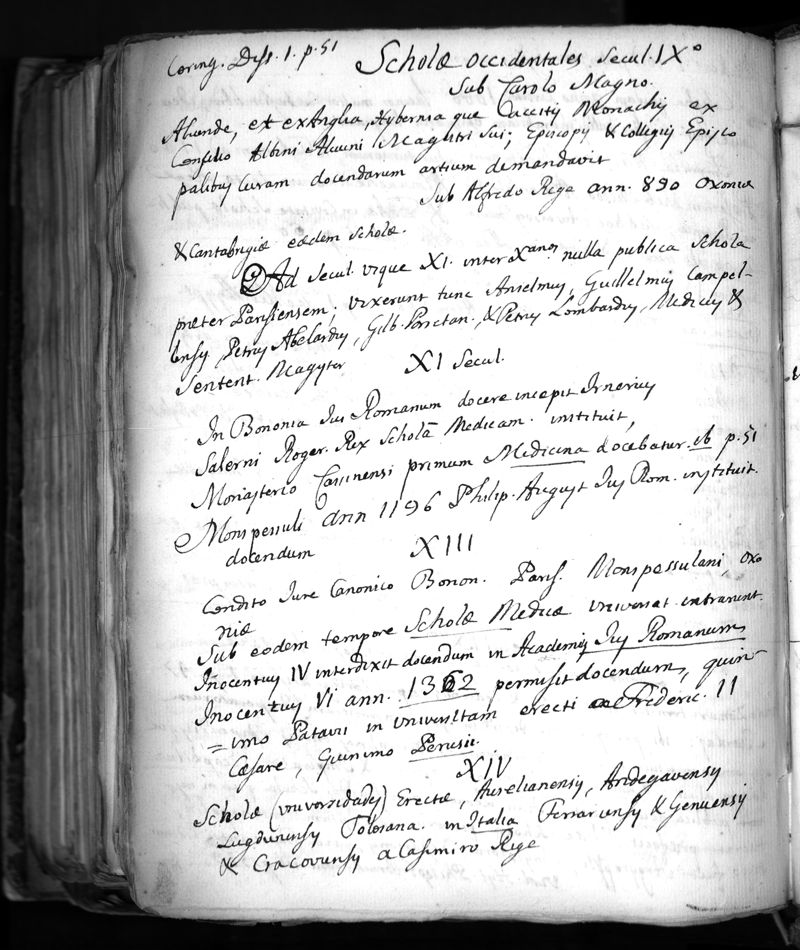 Coring. Diss. 1. p. 51
Scholæ occidentales Secul. IX°
Sub Carolo Magno.
Aliunde, et ex Anglia, Hybernia que Monachis ex
Consilio Albini Alcuini Magistri Sui; Episcopis & Collegiis Episco
palibus Curam docendarum artium demandavit
Sub Alfredo Rege ann. 890 Oxoniæ
& Cantabrigiæ eædem scholæ.
Ad Secul. vsque XI. inter Xanos nulla publica Schola
præter Parisiensem; vixerunt tunc Anselmus, Guillelmus Campel-
lensis, Petrus Abelardus, Gilb. Porretan. & Petrus Lombardus, Medicus &
Sentent. Magister
XI Secul.
In Bononia Jus Romanum docere incepit Irnerius
Salerni Roger. Rex Scholã Medicam instituit,
Monasterio Cassinensi primum Medicina docebatur. ib p. 51
Monspessuli ann 1196 Philip. August Jus Rom. instituit.
docendum
XIII
Condito Jure Canonico Bonon. Paris. Monspessulani, Oxo
niæ
Sub eodem tempore Scholæ Medicæ Universat. intrarunt.
Inocentius IV interdixit docendum in Academiis Jus Romanum,
Inocentius VI ann. 1362 permisit docendum, quin
=imo Patavii in Universitatem erecti a Frideric. II
Cæsare, Quinimo Perusii.
XIV
Scholæ (Vniversidades) Erectæ, Aurelianensis, Andegavensis
Lugdunensis Tolosana. in Italia Ferrariensis & Genuensis
& Cracovensis a Casimiro Rege